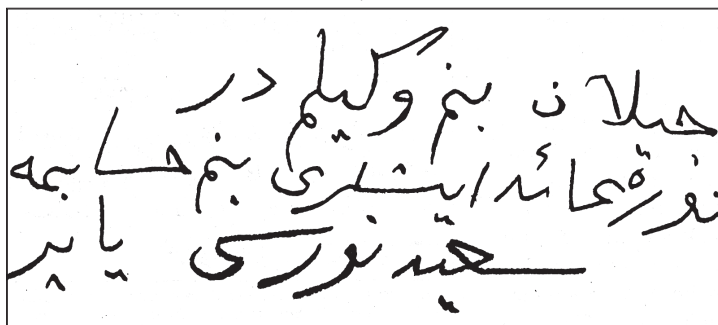 جيلان بنم وكيلم در
نورة عائد ايشلرى بنم حسابمه
سعيد نورسى ياپر